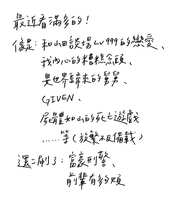 最近看滿多的！
像是：和山田談場Lv999的戀愛、
我內心的糟糕念頭、
異世界歸來的舅舅、
GIVEN、
屍體如山的死亡遊戲
……等（放鬆不及備載）
還二刷了：富豪刑警、
前輩有夠煩